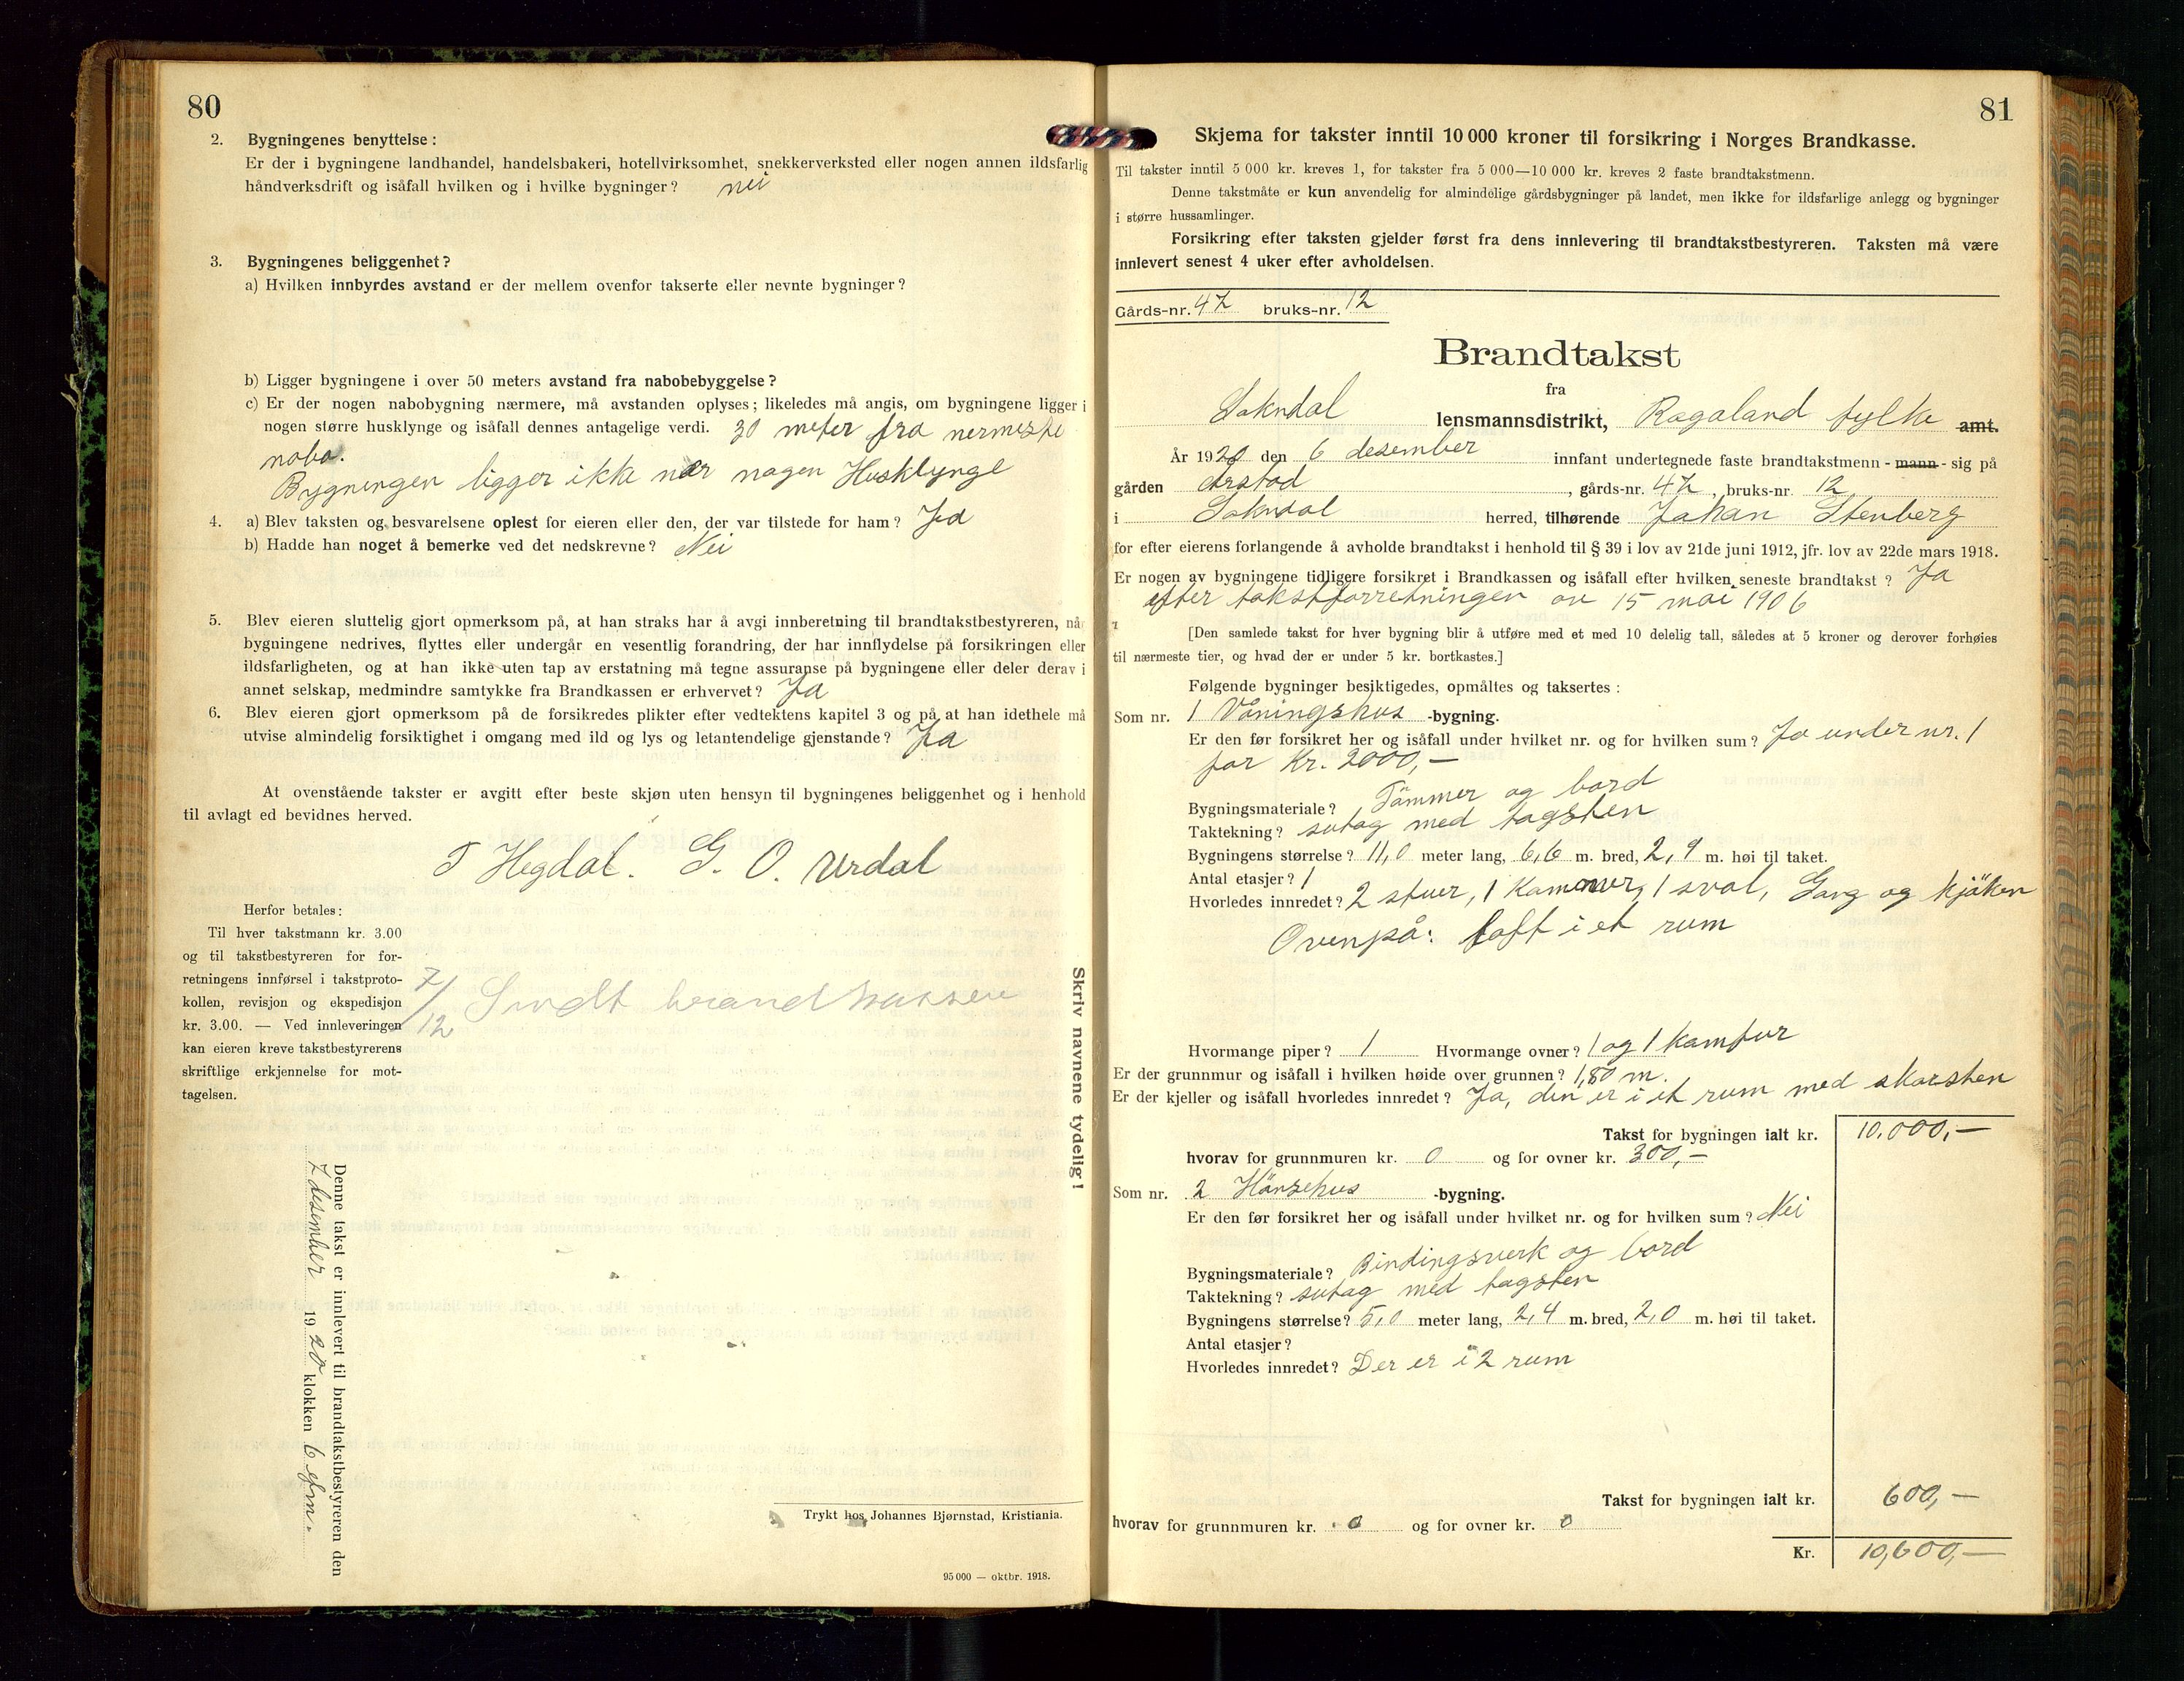 80
2. Bygningenes benyttelse:
Er der i bygningene landhandel, handelsbakeri, hotellvirksomhet, snekkerverksted eller nogen annen ildsfarlig
håndverksdrift og isåfall hvilken og i hvilke bygninger? nei
3. Bygningenes beliggenhet?
a) Hvilken innbyrdes avstand er der mellem ovenfor takserte eller nevnte bygninger?
b) Ligger bygningene i over 50 meters avstand fra nabobebyggelse?
c) Er der nogen nabobygning nærmere, må avstanden oplyses; likeledes må angis, om bygningene ligger i
nogen større husklynge og isåfall dennes antagelige verdi. 30 meter fra nermeste
nabo.
Bygningen ligger ikke nær nogen Husklynge
4. a) Blev taksten og besvarelsene oplest for eieren eller den, der var tilstede for ham? Ja
b) Hadde han noget å bemerke ved det nedskrevne? Nei
5. Blev eieren sluttelig gjort opmerksom på, at han straks har å avgi innberetning til brandtakstbestyreren, når
bygningene nedrives, flyttes eller undergår en vesentlig forandring, der har innflydelse på forsikringen eller
ildsfarligheten, og at han ikke uten tap av erstatning må tegne assuranse på bygningene eller deler derav i
annet selskap, medmindre samtykke fra Brandkassen er erhvervet? Ja
6. Blev eieren gjort opmerksom på de forsikredes plikter efter vedtektens kapitel 3 og på at han idethele må
utvise almindelig forsiktighet i omgang med ild og lys og letantendelige gjenstande? Ja
At ovenstående takster er avgitt efter beste skjøn uten hensyn til bygningenes beliggenhet og i henhold
til avlagt ed bevidnes herved.
T Hegdal. G. O. Urdal
Herfor betales:
Til hver takstmann kr. 3.00
og til takstbestyreren for for-
retningens innførsel i takstproto-
kollen, revisjon og ekspedisjon
kr. 3.00. — Ved innleveringen
kan eieren kreve takstbestyrerens
skriftlige erkjennelse for mot-
tagelsen.
7/12 Sendt brandkassen
Skriv navnene tydelig!
Denne takst er innlevert til brandtakstbestyreren den
7 desember 1920 klokken 6 efm.
Trykt hos Johannes Bjørnstad, Kristiania.
95 000 — oktbr. 1918.
81
Skjema for takster inntil 10 000 kroner til forsikring i Norges Brandkasse.
Til takster inntil 5 000 kr. kreves 1, for takster fra 5 000—10 000 kr. kreves 2 faste brandtakstmenn.
Denne takstmåte er kun anvendelig for almindelige gårdsbygninger på landet, men ikke for ildsfarlige anlegg og bygninger
i større hussamlinger.
Forsikring efter taksten gjelder først fra dens innlevering til brandtakstbestyreren. Taksten må være
innlevert senest 4 uker efter avholdelsen.
Gårds-nr. 47 bruks-nr. 12
Brandtakst
fra
Sokndal lensmannsdistrikt, Rogaland fylke amt.
År 1920 den 6 desember innfant undertegnede faste brandtakstmenn - mann - sig på
gården Årstad, gårds-nr. 47, bruks-nr. 12
i Sokndal herred, tilhørende Johan Stenberg
for efter eierens forlangende å avholde brandtakst i henhold til § 39 i lov av 21de juni 1912, jfr. lov av 22de mars 1918.
Er nogen av bygningene tidligere forsikret i Brandkassen og isåfall efter hvilken seneste brandtakst? Ja
efter takstforretningen av 15 mai 1906
[Den samlede takst for hver bygning blir å utføre med et med 10 delelig tall, således at 5 kroner og derover forhøies
til nærmeste tier, og hvad der er under 5 kr. bortkastes.]
Følgende bygninger besiktigedes, opmåltes og taksertes:
Som nr. 1 Våningshus -bygning.
Er den før forsikret her og isåfall under hvilket nr. og for hvilken sum? Ja under nr. 1
for Kr. 2000,—
Bygningsmateriale? Tömmer og bord
Taktekning? sutag med tagsten
Bygningens størrelse? 11,0 meter lang, 6,6 m. bred, 2,9 m. høi til taket.
Antal etasjer? 1
Hvorledes innredet? 2 stuer, 1 Kammer, 1 sval, Gang og kjöken
Ovenpå: loft i et rum
Hvormange piper? 1 Hvormange ovner? 1 og 1 komfur
Er der grunnmur og isåfall i hvilken høide over grunnen? 1,80 m.
Er der kjeller og isåfall hvorledes innredet? Ja, den er i et rum med skorsten
Takst for bygningen ialt kr. 10.000,—
hvorav for grunnmuren kr. 0 og for ovner kr. 300,—
Som nr. 2 Hönsehus -bygning.
Er den før forsikret her og isåfall under hvilket nr. og for hvilken sum? Nei
Bygningsmateriale? Bindingsverk og bord
Taktekning? sutag med tagsten
Bygningens størrelse? 5,0 meter lang, 2,4 m. bred, 2,0 m. høi til taket.
Antal etasjer?
Hvorledes innredet? Der er i 2 rum
Takst for bygningen ialt kr. 600,—
hvorav for grunnmuren kr. 0 og for ovner kr. 0
Kr. 10,600,—